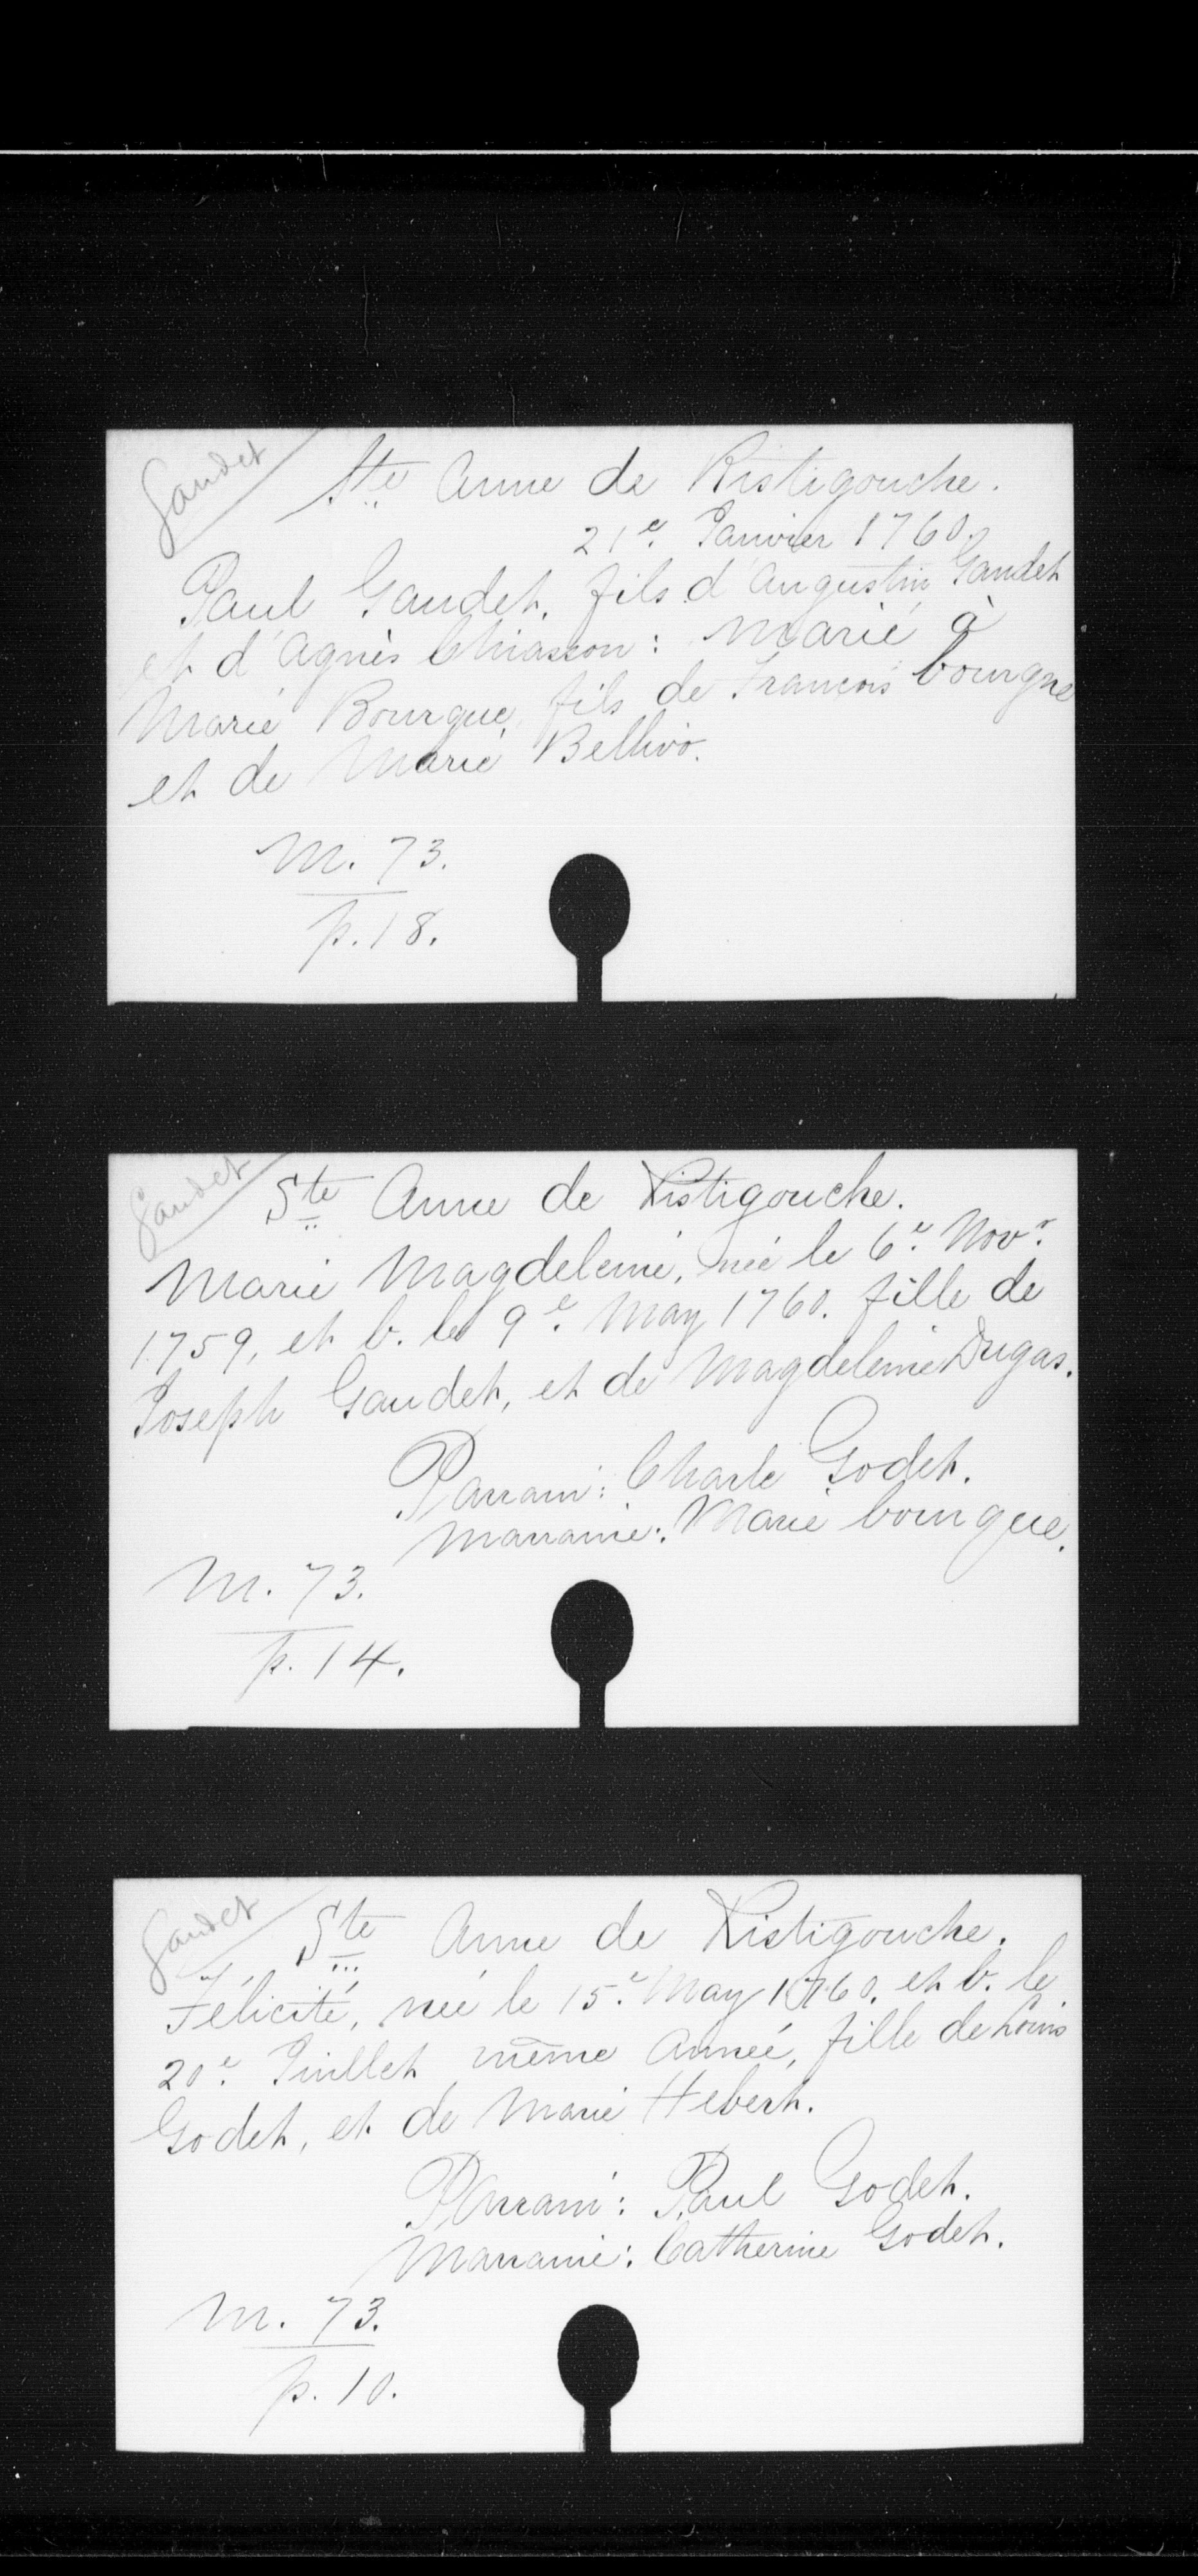 Gaudet
Ste Anne de Ristigouche.
21e. Janvier 1760.
Paul Gaudet, fils d'Augustin Gaudet
et d'Agnès Chiasson: marié à
Marie Bourgue, fils de Francois bourgue
et de Marie Bellivo.
M. 73.
p. 18.
Gaudet
Ste Anne de Ristigouche.
Marie Magdeleine, née le 6e. Novr.
1759, et b. le 9e. May 1760. fille de
Joseph Gaudet, et de Magdeleine Dugas.
Parrain: Charle Godet.
Marraine: Marie bourgue.
M. 73.
p. 14.
Gaudet
Ste Anne de Ristigouche.
Félicité, née le 15e. May 1760. et b. le
20e. Juillet même année, fille de Louis
Godet, et de Marie Hebert.
Parrain: Paul Godet.
Marraine: Catherine Godet.
M. 73.
p. 10.